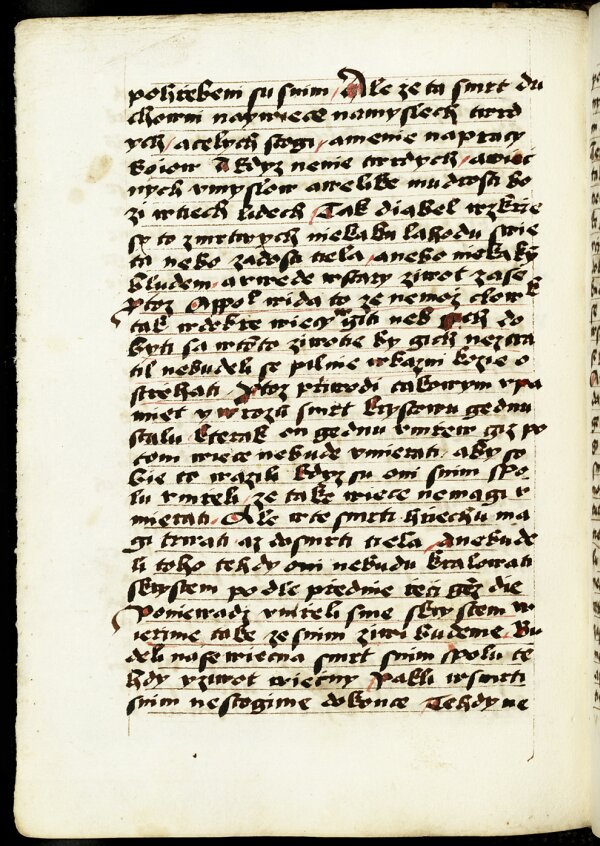 pohřebeni su snim / Ale ze ta smrt du
chowni naywiece namyslech twrd
ych / acelych stogi / amenie napracy
Kdyz nenie twrdych / awiec
nych vmyslow awelike mudrosti bo
zi wtiech lidech / Tak diabel wzkrie
sy to zmrtwych niekaku lahodu swie
ta nebo zadosti tiela / anebo niekaky
bludem / awwede wstary ziwot zase
Ptoz Appol wida to ze nemoz clowek
tak wdobre wiecy giti neb gich do
byti sa wtoto ziwotie by gich neztra
til nebudeli se pilnie wkazni bozie o
střiehati Ptoz přiwodi takowym vpa
miet y wrozu smrt krystowu gednu
stalu / kterak on gednu vmrew giz po
tom wiece nebude vmierati / aby so
bie to wrazili kdyz su oni snim spo
lu vmreli / ze take wiece nemagi v
mierati / Ale wte smrti hřiechu ma
gi trwati az dosmrti tiela / Anebude
li toho tehdy oni nebudu kralowati
skrystem podle přednie řeči gež die
Poniewadz vmreli sme skrystem w
ierime take ze snim ziwi budeme / Bu
deli nase wiecna smrt snim spolu te
hdy yziwot wiečny Pakli wsmrti
snim nestogime dokonce Tehdy ne